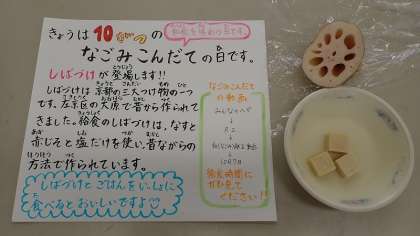 きょうは10がつの
和食を味わう日です。
なごみこんだての日です。
しばづけが登場します!!
とうじょう
しばづけは京都の三大つけ物の一つ
です。左京区の大原で昔から作られて
きました。給食のしばづけは、なすと
赤じそと塩だけを使い、昔ながらの
方法で作られています。
しばづけとごはんをいっしょに
食べるとおいしいですよ
なごみこんだて
の動画
みんなのへや
↓
↓
↓
給食時間に
ぜひ見て
ください!!